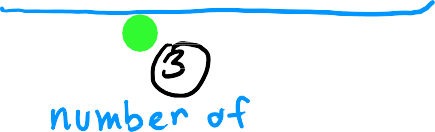 3
number of